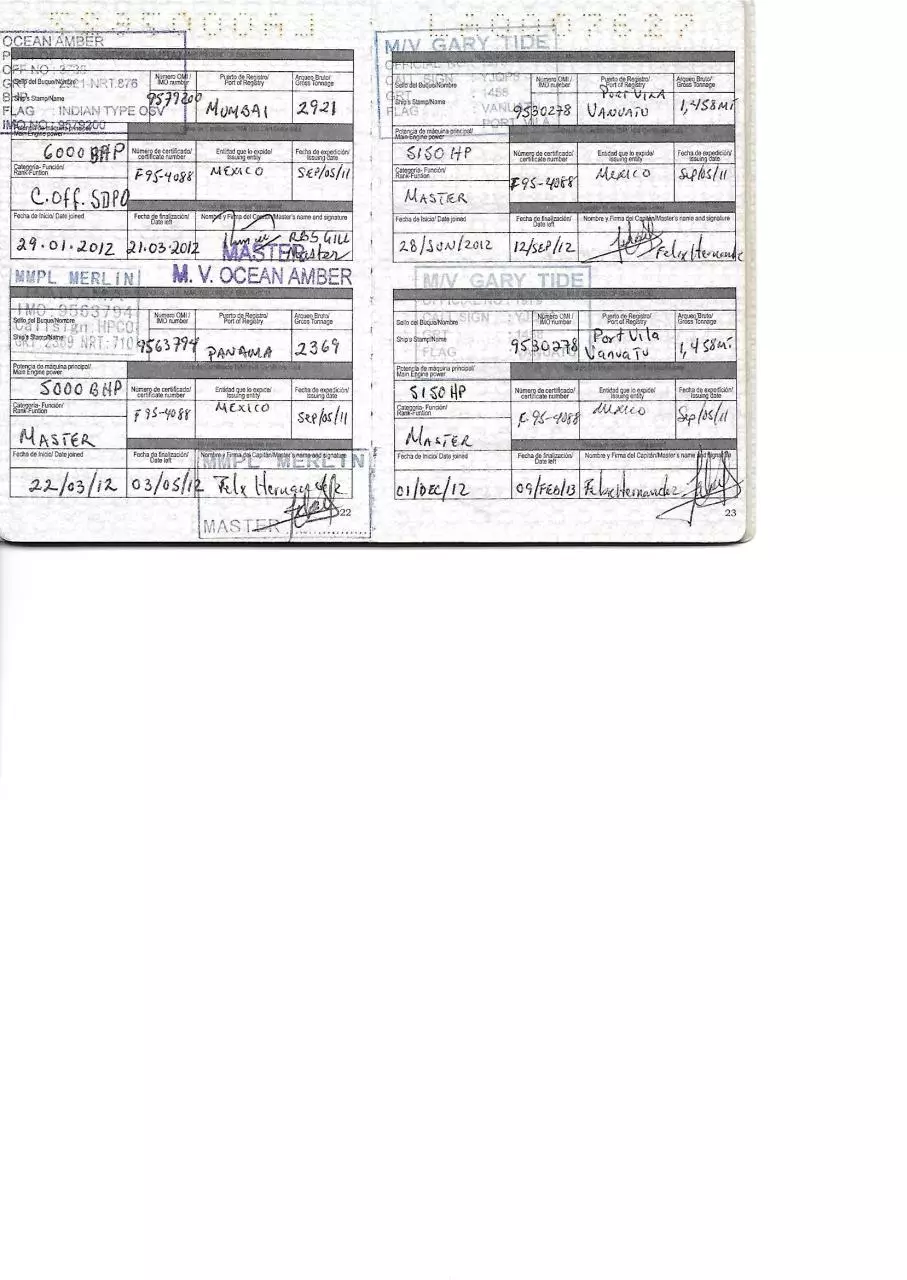 OCEAN AMBER
OFF NO
GRT 2921 NRT.876
FLAG : INDIAN TYPE OSV
IMO NO : 9579200
Sello del Buque/Nombre
Ship's Stamp/Name
Número OMI/
IMO number
9579200
Puerto de Registro/
Port of Registry
MUMBAI
Arqueo Bruto/
Gross Tonnage
2921
Potencia de máquina principal/
Main Engine power
6000 BHP
Número de certificado/
certificate number
F95-4088
Entidad que lo expide/
Issuing entity
MEXICO
Fecha de expedición/
issuing date
SEP/05/11
Categoría- Función/
Rank-Funtion
C.Off. SDPO
Fecha de Inicio/ Date joined
29.01.2012
Fecha de finalización/
Date left
21.03.2012
Nombre y Firma del Capitán/Master's name and signature
RBS GILL
Master
MASTER
M. V. OCEAN AMBER
MMPL MERLIN
IMO 9563794
Callsign HPCO
GRT 2369 NRT:710
Sello del Buque/Nombre
Ship's Stamp/Name
Número OMI /
IMO number
9563794
Puerto de Registro/
Port of Registry
PANAMA
Arqueo Bruto/
Gross Tonnage
2369
Potencia de máquina principal/
Main Engine power
5000 BHP
Número de certificado/
certificate number
F95-4088
Entidad que lo expide/
Issuing entity
MEXICO
Fecha de expedición/
issuing date
Sep/05/11
Categoría- Función/
Rank-Funtion
MASTER
Fecha de Inicio/ Date joined
22/03/12
Fecha de finalización/
Date left
03/05/12
Nombre y Firma del Capitán/Master's name and signature
Felix
MMPL MERLIN
MASTER
22
M/V GARY TIDE
OFFICIAL NO.
CALL SIGN : YJQP9
GRT : 1458
FLAG : VANU
PORT VILA
Sello del Buque/Nombre
Ship's Stamp/Name
Número OMI/
IMO number
9530278
Puerto de Registro/
Port of Registry
PORT VILA
VANUATU
Arqueo Bruto/
Gross Tonnage
1,458MT
Potencia de máquina principal/
Main Engine power
5150 HP
Número de certificado/
certificate number
F95-4088
Entidad que lo expide/
Issuing entity
MEXICO
Fecha de expedición/
issuing date
Sep/05/11
Categoría- Función/
Rank-Funtion
MASTER
Fecha de Inicio/ Date joined
28/JUN/2012
Fecha de finalización/
Date left
12/SEP/12
Nombre y Firma del Capitán/Master's name and signature
Felix Hernandez
M/V GARY TIDE
OFFICIAL NO
CALL SIGN : YJ
GRT : 1458
FLAG : VANUATU
Sello del Buque/Nombre
Ship's Stamp/Name
Número OMI/
IMO number
9530278
Puerto de Registro/
Port of Registry
Port Vila
Vanuatu
Arqueo Bruto/
Gross Tonnage
1,458MT
Potencia de máquina principal/
Main Engine power
5150 HP
Número de certificado/
certificate number
F-95-4088
Entidad que lo expide/
Issuing entity
MEXICO
Fecha de expedición/
issuing date
Sep/05/11
Categoría- Función/
Rank-Funtion
MASTER
Fecha de Inicio/ Date joined
01/DEC/12
Fecha de finalización/
Date left
09/FEB/13
Nombre y Firma del Capitán/Master's name and signature
Felix Hernandez
23